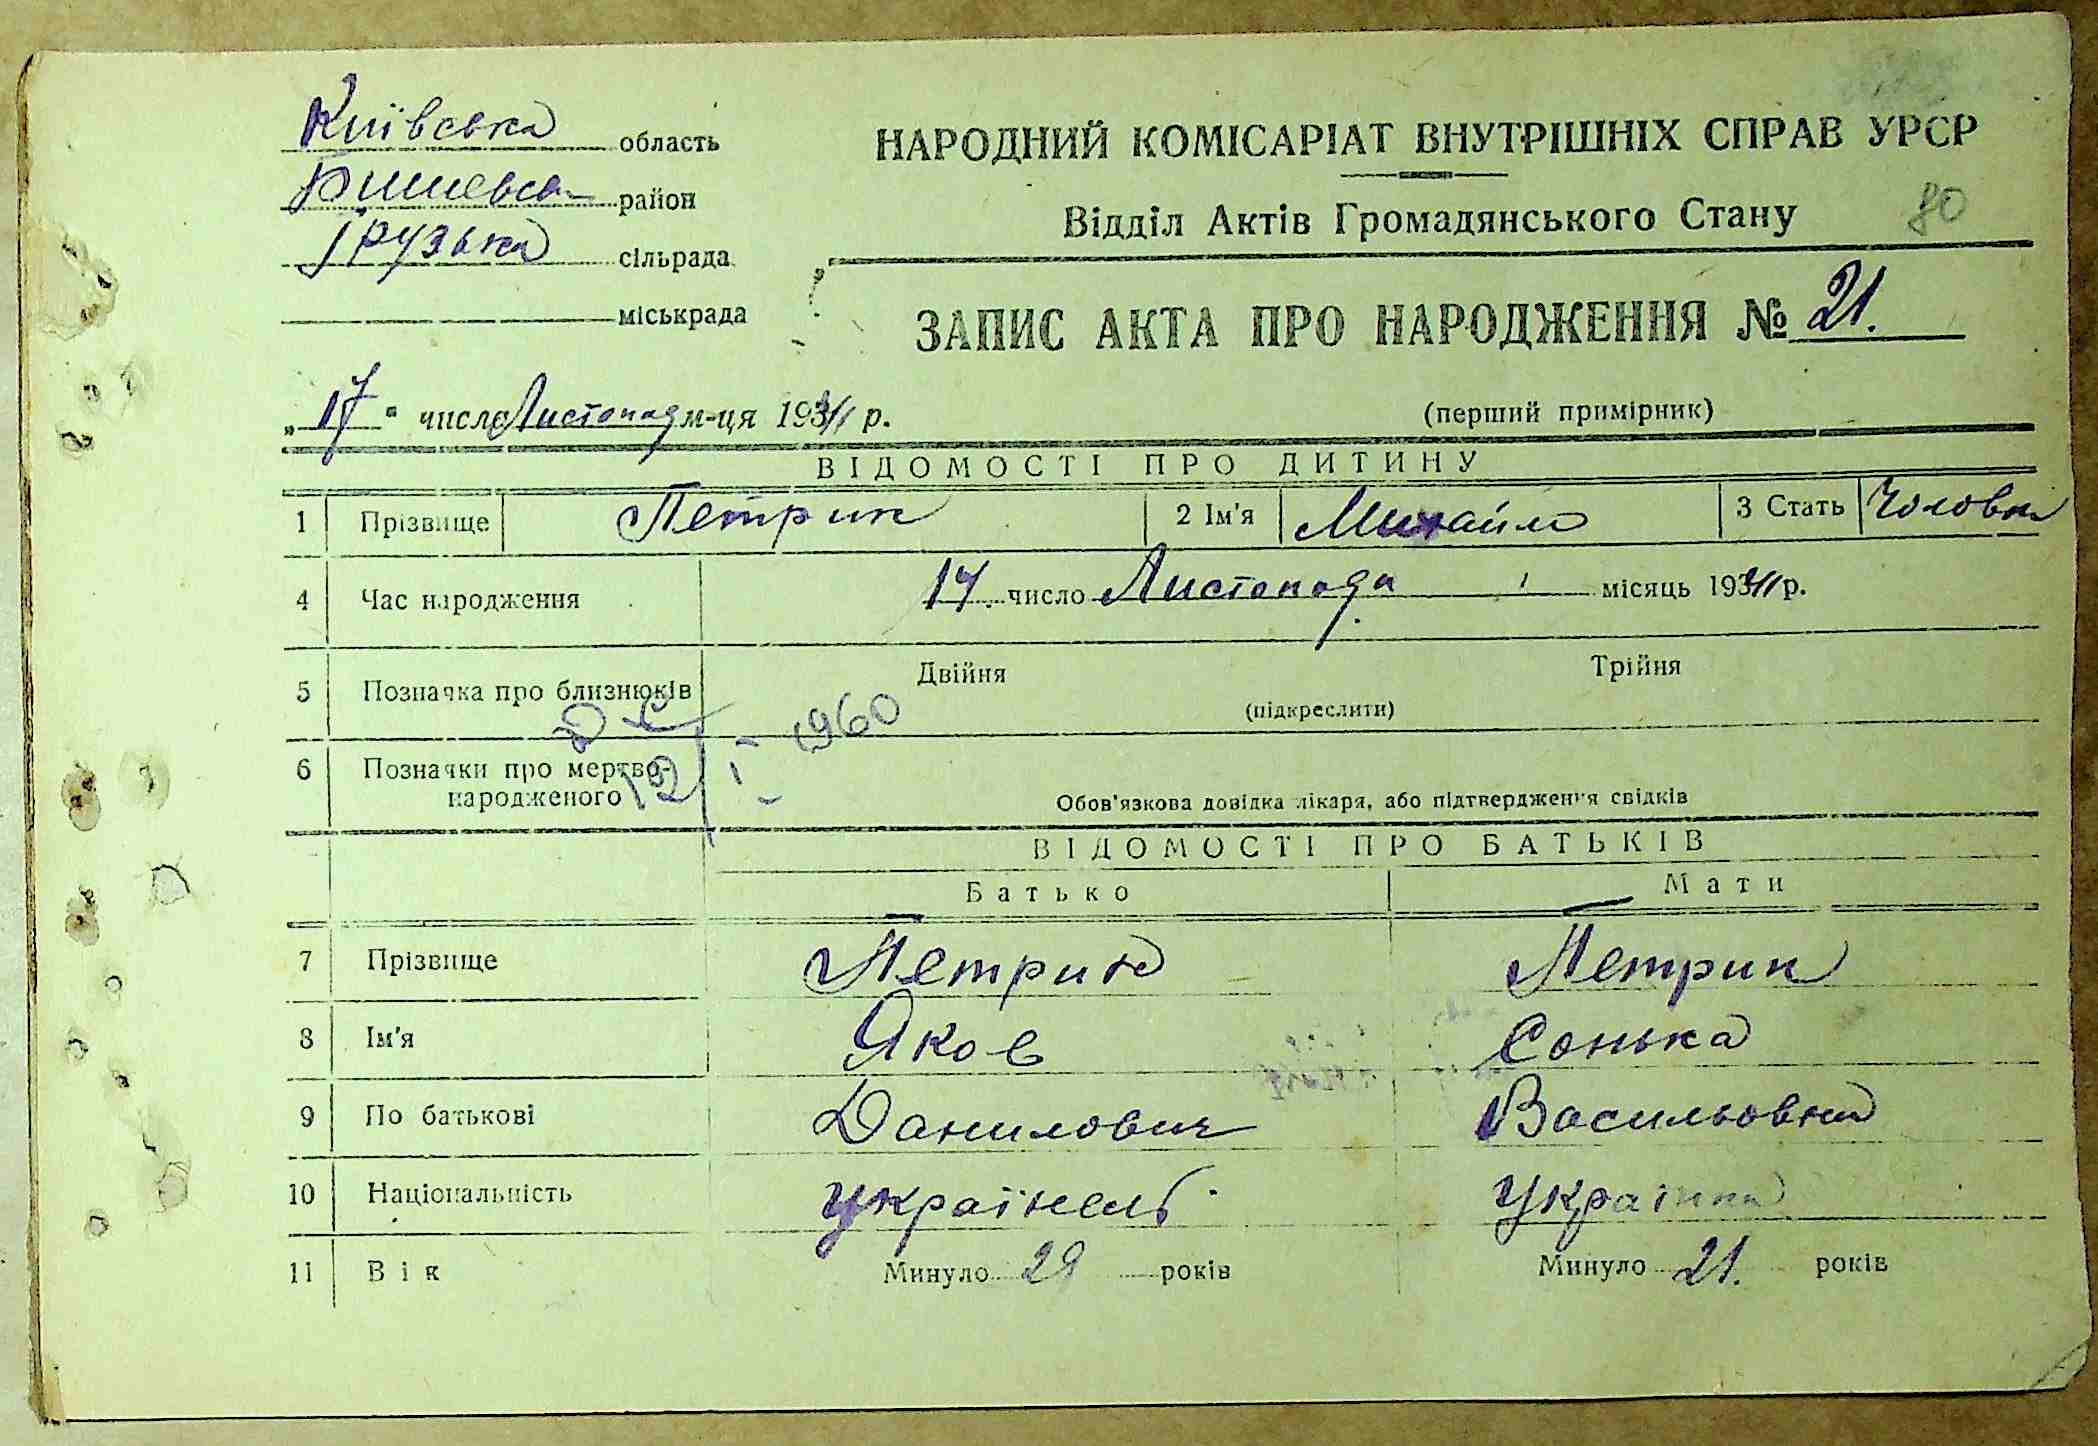 Київська область
НАРОДНИЙ КОМІСАРІАТ ВНУТРІШНІХ СПРАВ УРСР
Бишевсь район
Відділ Актів Громадянського Стану 80
Грузька сільрада
міськрада
ЗАПИС АКТА ПРО НАРОДЖЕННЯ № 21.
„17" число Листопад м-ця 1941 р. (перший примірник)
ВІДОМОСТІ ПРО ДИТИНУ
1 Прізвище Петрик 2 Ім'я Михайло 3 Стать Чоловіч
4 Час народження 14 число Листопада місяць 1941 р.
5 Позначка про близнюків Двійня Трійня
(підкреслити)
12/I 1960
6 Позначки про мертво-
народженого Обов'язкова довідка лікаря, або підтвердження свідків
ВІДОМОСТІ ПРО БАТЬКІВ
Батько Мати
7 Прізвище Петрик Петрик
8 Ім'я Яков Сонька
9 По батькові Данилович Васильовна
10 Національність українець українка
11 Вік Минуло 29 років Минуло 21. років